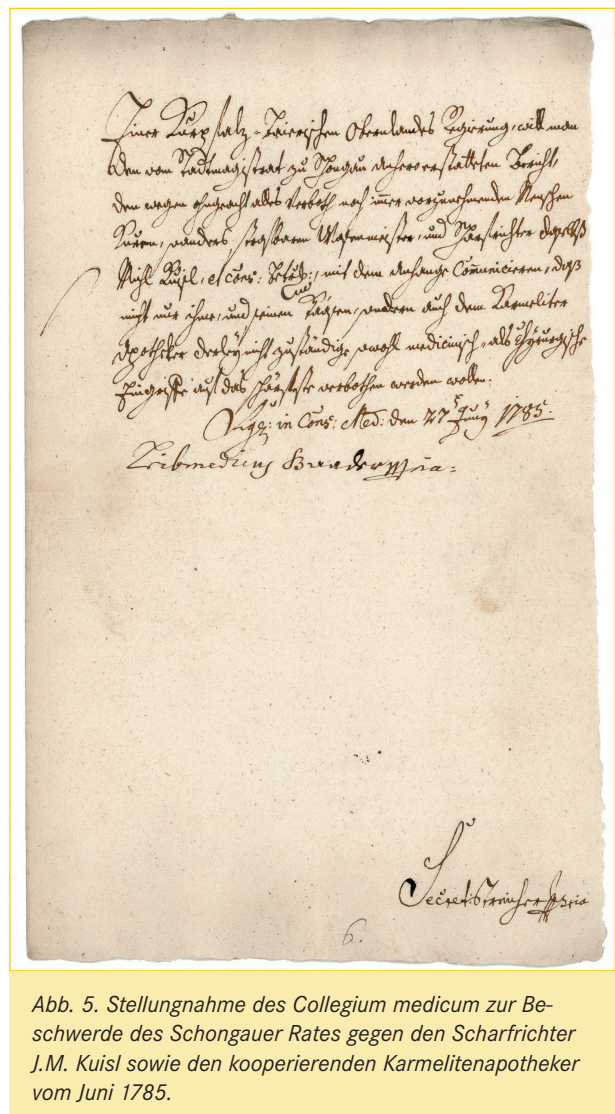 Einer Kurpfalz-Baierischen Obernlandes Regierung, will man
den vom Stadtmagistrat zu Schongau anher erstatteten Bericht,
den wegen ohngeacht alles Verboth noch immer vorzunehmenden Menschen
Kuren, sonders strafbaren Wasenmeister, und Scharfrichter daselbst
Michl Kuisl, et cons: betrf:, mit dem Anhange Com̅unicieren, daß
nicht nur ihme, und seinen, sondern auch dem Karmeliter
Apotheker derley nicht zuständige sowohl medicinisch- als Chyrurgische
Eingriffe auf das schärfste verbothen werden wollen.
Sign: in Cons: Med: den 27 Juny 1785.
Leibmedicus Brader mpria:
Secret: Streicher mpria
6.
Abb. 5. Stellungnahme des Collegium medicum zur Be-
schwerde des Schongauer Rates gegen den Scharfrichter
J.M. Kuisl sowie den kooperierenden Karmelitenapotheker
vom Juni 1785.